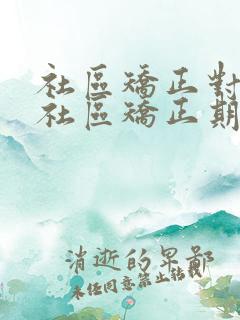 社區矯正對
社區矯正期
消逝的果鄙
未任同意禁止轉載